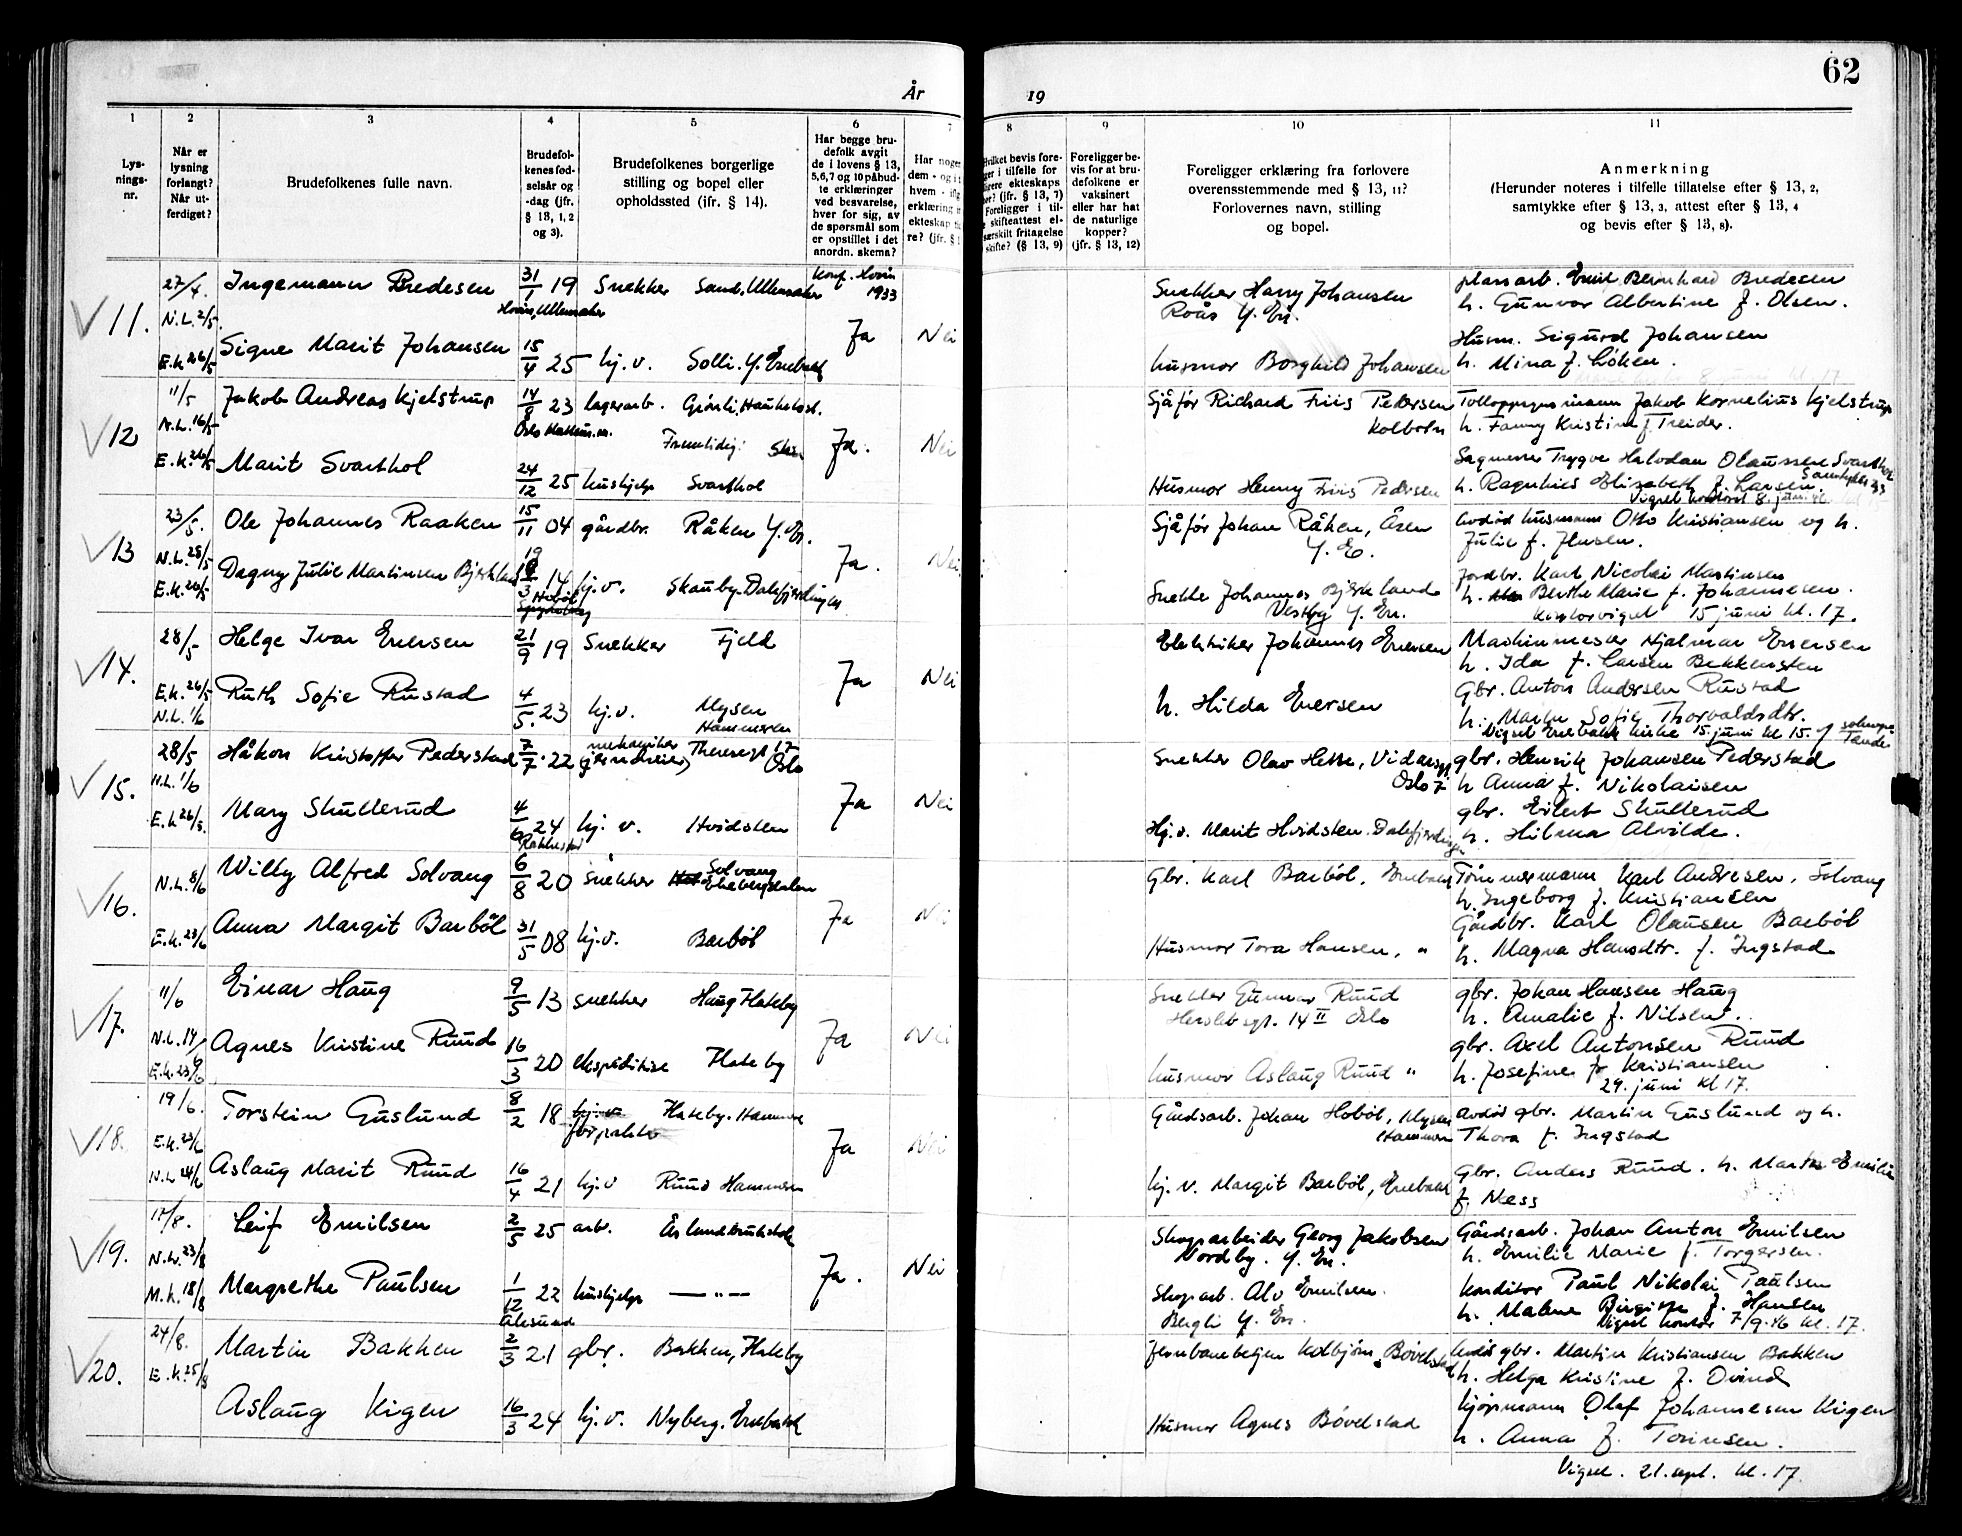 62
År
19
1
2
3
4
5
6
7
8
9
10
11
Lys-
nings-
nr.
Når er
lysning
forlangt?
Når ut-
ferdiget?
Brudefolkenes fulle navn.
Brudefol-
kenes fød-
selsår og
-dag (jfr.
§ 13, 1, 2
og 3).
Brudefolkenes borgerlige
stilling og bopel eller
opholdssted (ifr. § 14).
Har begge bru-
defolk avgit
de i lovens § 13,
5, 6, 7 og 10 påbud-
te erklæringer
ved besvarelse,
hver for sig, av
de spørsmål som
er opstillet i det
anordn. skema?
Har noge
dem - og i t
hvem - ift
erklæring
ekteskap
re? (jfr. §
Hvilket bevis fore-
ger i tilfelle for
ligere ekteskaps
ør? (jfr. § 13, 7)
Foreligger i til-
e skifteattest el-
særskilt fritagelse
skifte? (§ 13, 9)
Foreligger be-
vis for at bru-
defolkene er
vaksinert
eller har hat
de naturlige
kopper?
(jfr. § 13, 12)
Foreligger erklæring fra forlovere
overensstemmende med § 13, 11?
Forlovernes navn, stilling
og bopel.
Anmerkning
(Herunder noteres i tilfelle tillatelse efter § 13, 2,
samtykke efter § 13, 3, attest efter § 13, 4
og bevis efter § 13, 8).
11.
27/4.
N.L. 2/5.
E.k. 26/5
Ingemann Bredesen
31/1 19
Hovin, Ullensaker
Snekker Sand, Ullensaker
Konf. Hovin
1933
Signe Marit Johansen
15/4 25
hj.v. Solli. Y. Enebakk
Ja
Nei
Snekker Harry Johansen
Roås Y. En.
husmor Borghild Johansen
Emil Bernhard Bredesen
h. Gunvor Albertine f. Olsen.
Husm. Sigurd Johansen
h. Mina f. Løken.
12
11/5
N.L. 16/5
E.k. 26/5
Jakob Andreas Kjelstrup
14/9 23
lagerarb.
Fremtidig: Skin
Marit Svarthol
24/12 25
hushjelp Svarthol
Ja.
Nei
Sjåfør Richard Friis Pedersen
Kolbotn
Husmor Henny Friis Pedersen
Jakob Kornelius Kjelstrup
h. Fanny Kristine f. Treider.
Trygve Halvdan Olaussen Svarthol
h. Ragnhild Elizabeth f. Larsen.
13
23/5.
N.L. 28/5
E.k. 26/5
Ole Johannes Raaken
15/11 04
gårdbr. Råken Y. En.
Dagny Julie Martinsen Bjerkland
14
Hobøl
hj.v. Skauby. Dalefjerdingen
Ja.
Nei
Sjåfør Johan Råken, Åsen
Y. E.
Snekke Johannes Bjerkeland
Vestby Y. En.
avdød husmann Otto Kristiansen og h.
Julie f. Jensen.
Jordbr. Karl Nicolai Martinsen
h. Berthe Marie f. Johannesen.
15 juni kl. 17.
14.
28/5
E.k. 26/5
N.L. 1/6
Helge Ivar Enersen
21/9 19
Snekker Fjeld
Ruth Sofie Rustad
4/5. 23
hj.v. Mysen
Hammeren
Ja
Nei
Elektriker Johannes Enersen
h. Hilda Enersen
Maskinmester Hjalmar Enersen
h. Ida f. Larsen Bekkensten
Gbr. Anton Andersen Rustad
h. Marthe Sofie Thorvaldsdtr.
Vigsel Enebakk kirke 15. juni kl 15.
15.
28/5
N.L. 1/6
E.k. 26/5.
Håkon Kristoffer Pederstad
7/7. 22
mekaniker
Theresegt 17
Oslo
Mary Skullerud
4/6 24
Rakkestad
hj. v. Hvidsten
Ja
Nei
Snekker Olav Hette, Vidarsgt
Oslo 7
Hj.v. Marit Hvidsten. Dalefjerdingen
gbr. Henrik Johansen Pederstad
h Anna f. Nikolaisen
gbr. Eilert Skullerud
h. Hilma Alvilde.
16.
N.L. 8/6
E.k. 23/6
Willy Alfred Solvang
6/8 20
snekker Solvang
Ekebergdalen
Anna Margit Barbøl
31/5 08
hj.v. Barbøl
Ja
Nei
Gbr. Karl Barbøl, Enebakk
Husmor Tora Hansen, "
Tømmermann Karl Andresen. Solvang
h. Ingeborg f. Kristiansen
Gårdbr. Karl Olausen Barbøl
h. Magna Hansdtr. f. Ingstad
17.
11/6
N.L. 14/6
E.k. 23/6
Einar Haug
9/5 13
snekker Haug Flateby
Agnes Kristine Ruud
16/3 20
ekspeditrise Flateby
Ja
Nei
Snekker Gunnar Ruud
Herslebsgt. 14 II Oslo
husmor Aslaug Ruud "
gbr. Johan Hansen Haug
h. Amalie f. Nilsen.
gbr. Axel Antonsen Ruud
h. Josefine f. Kristiansen
29. juni kl 17.
18.
19/6.
E.k. 23/6
N.L. 24/6
Torstein Guslund
8/2 18
hj.v.
forpakter
Flateby. Hammeren
Aslaug Marit Ruud
16/4 21
hj.v Ruud Hammeren
Ja
Nei
Gårdsarb. Johan Hobøl, Mysen
Hammeren
hj. v. Margit Barbøl, Enebakk
avdød gbr. Martin Guslund og h.
Thora f. Ingstad
Gbr. Anders Ruud. h. Marthe Emilie
f. Ness
19.
17/8.
N.L. 23/8
M.k. 18/8
Leif Emilsen
2/5 25
arb. Ås landbrukskole
Margrethe Paulsen
1/12 22
Ålesund
hushjelp — " —
Ja.
Nei
Skogarbeider Georg Jakobsen
Nordby. Y. En.
Skogarb. Alv Emilsen.
Bergli Y. En.
Gårdsarb. Johan Anton Emilsen
h. Emilie Marie f. Torgersen.
Konditor Paul Nikolai Paulsen
h. Malene Birgitte f. Hansen
Vigsel kontor 7/9-46 kl. 17.
20.
24/8.
E.k. 25/8
Martin Bakken
2/3 21
gbr. Bakken, Flateby
Aslaug Kigen
16/3 24
hj.v. Nyberg. Enebakk
Jernbanebetjen Kolbjørn Bøvelstad
Husmor Agnes Bøvelstad
Avdød gbr. Martin Kristiansen Bakken
h. Helga Kristine f. Ovind
Kjøpmann Olaf Johannesen Kigen
h. Anna f. Torinsen.
Vigsel. 21. sept. kl. 17.